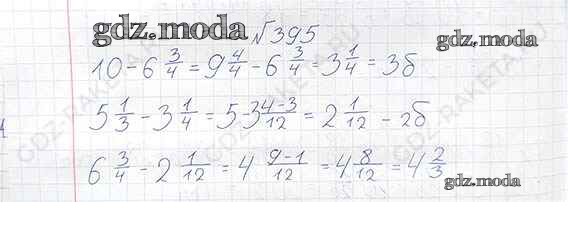 gdz.moda
№395
gdz.moda
10 - 6 3/4 = 9 4/4 - 6 3/4 = 3 1/4 = 3б
5 1/3 - 3 1/4 = 5-3 4-3/12 = 2 1/12 - 2б
6 3/4 - 2 1/12 = 4 9-1/12 = 4 8/12 = 4 2/3
gdz.moda
GDZ-RAKETA.RU